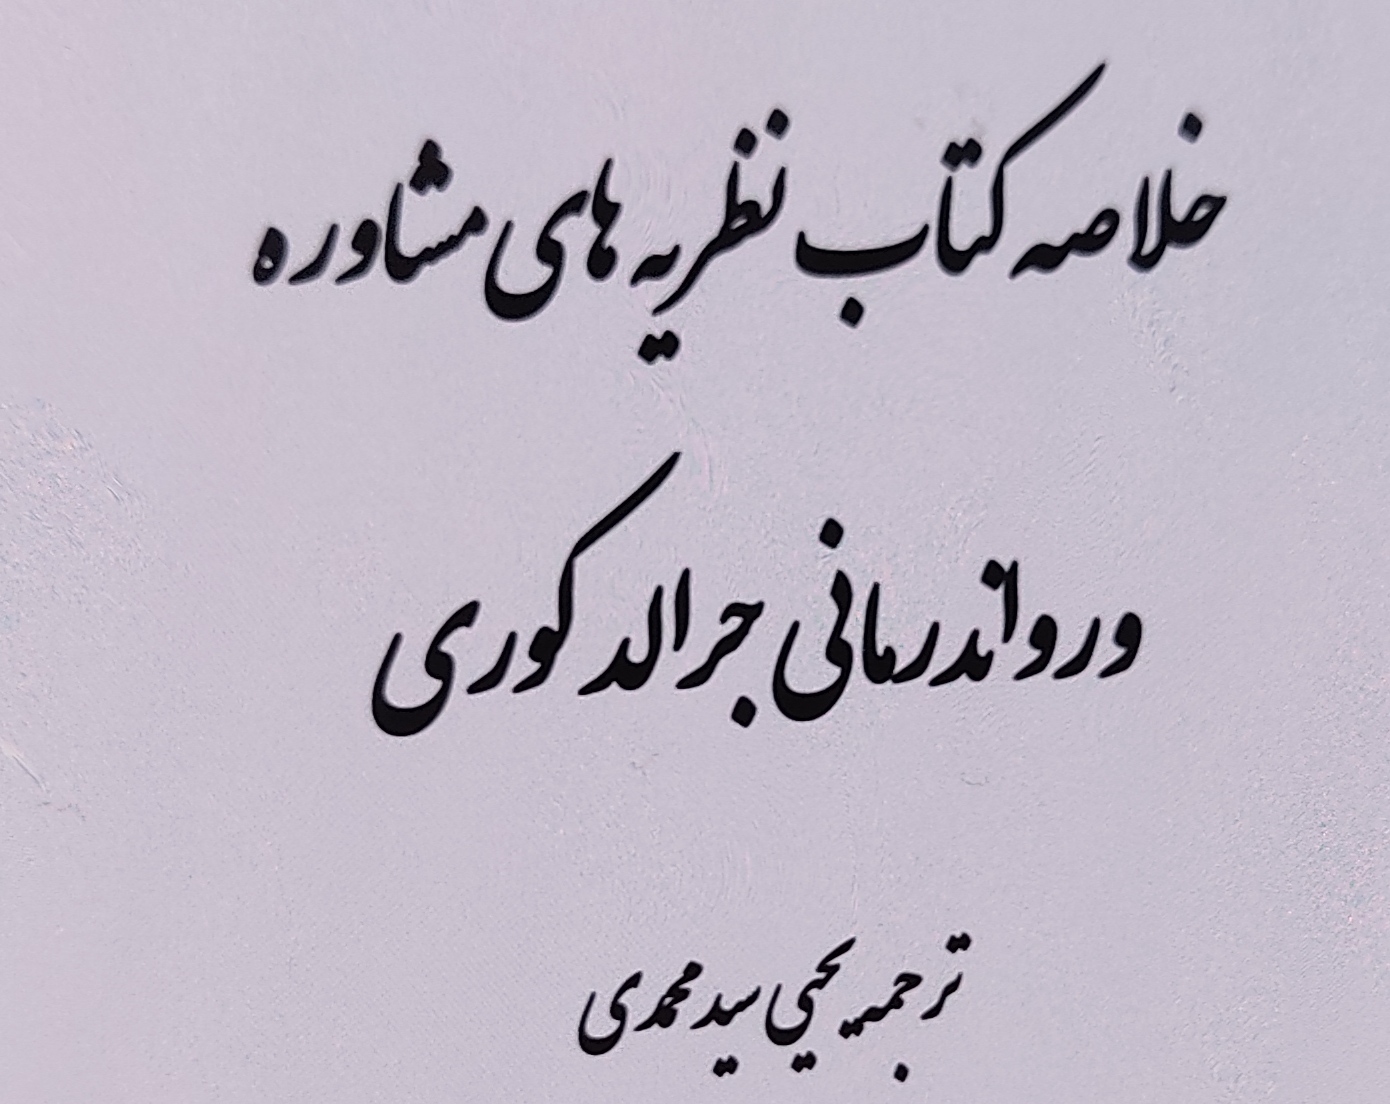 خلاصه کتاب نظریه های مشاوره
ورواندرمانی جرالد کوری
ترجمه یحیی سید محمدی